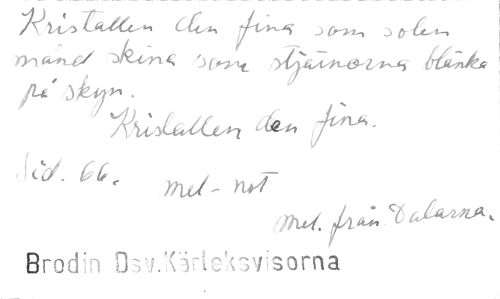 Kristallen den fina som solen
månd skina som stjärnorna blänka
på skyn.
Kristallen den fina.
Sid. 66.
mel-not
mel. från Dalarna.
Brodin Osv.Kärleksvisorna